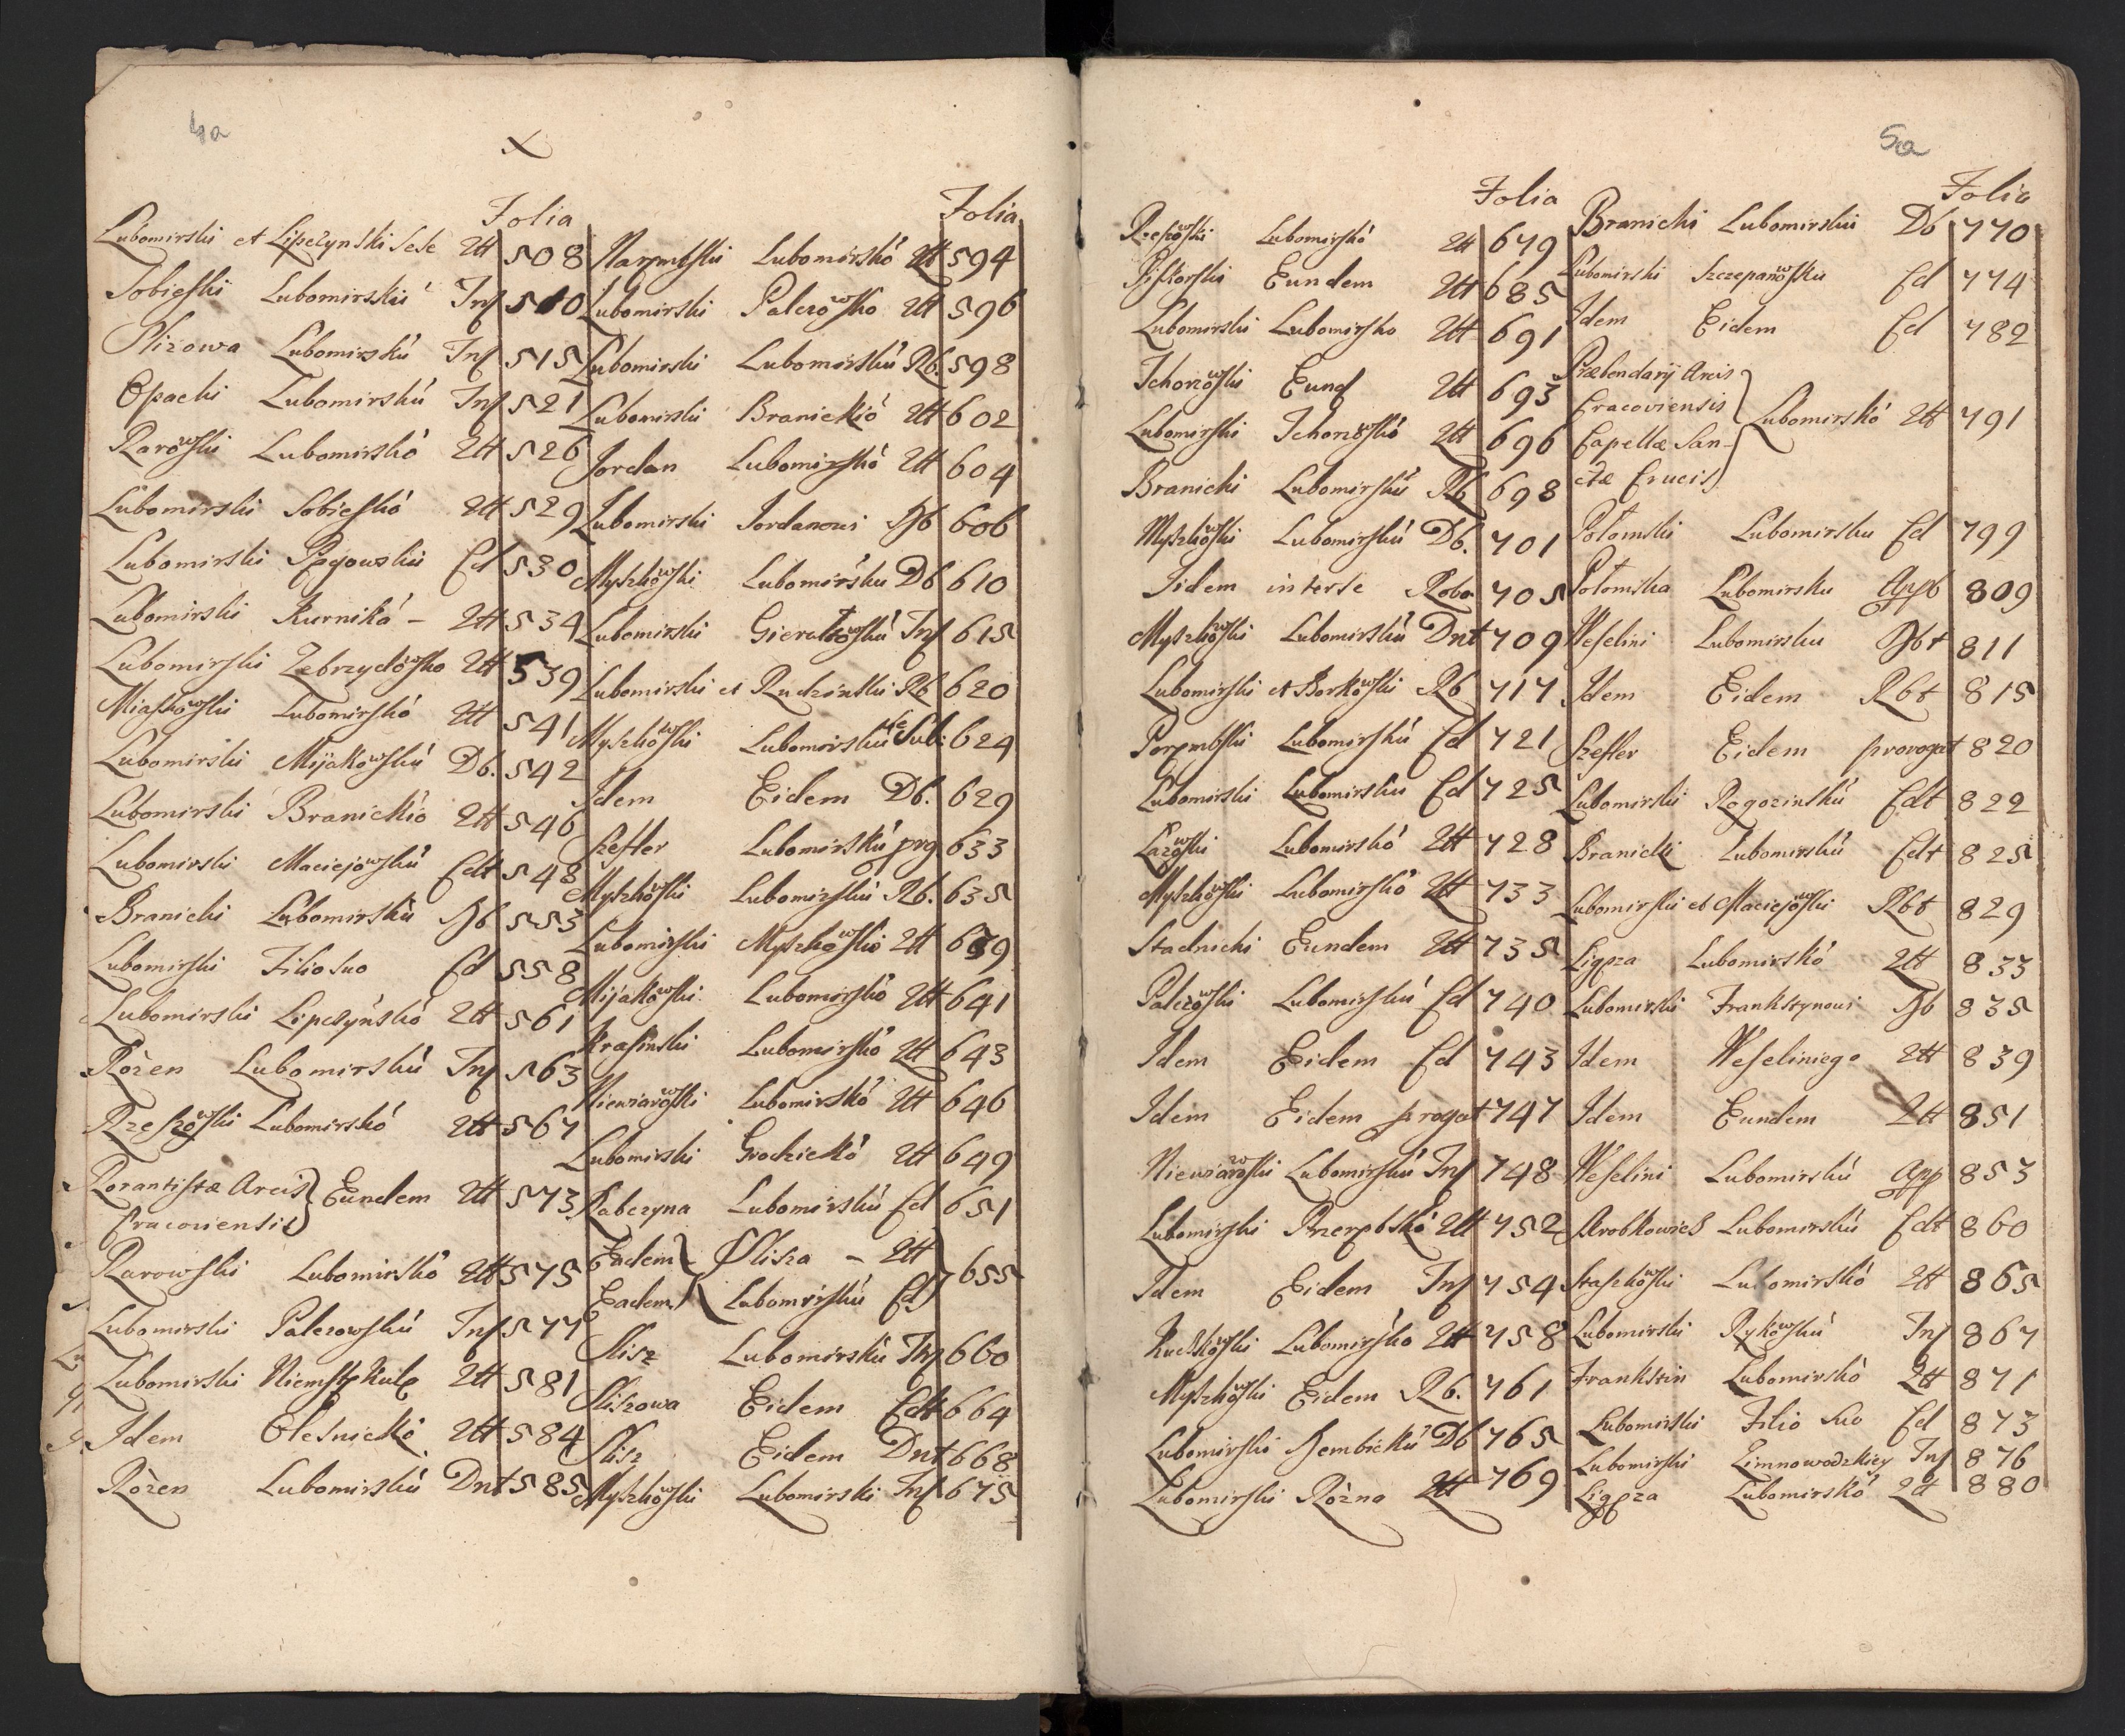 4a
x
Folia
Lubomirski et Lipczynski Sese Qtt 508
Sobieski Lubomirskiú Ins 510
Slizowa Lubomirskú Ins 515
Opacki Lubomirskú Ins 521
Rarowski Lubomirskó Qtt 526
Lubomirski Sobieskó Qtt 529
Lubomirski Rogowsku Cd 530
Lubomirski Kurniká – Qtt 534
Lubomirski Zebrzydowsko Qtt 539
Miaskowski Lubomirskó Qtt 541
Lubomirski Mijakowskú Db. 542
Lubomirski Branickió Qtt 546
Lubomirski Maciejowskú Cdt 548
Branicki Lubomirskú Hb 553
Lubomirski Filio suo Cd 558
Lubomirski Lipczynskó Qtt 561
Rózen Lubomirskú Ins 563
Rzeszowski Lubomirskó Qtt 567
Rorantistæ Arcis
Cracoviensis } Eundem Qtt 573
Rarowski Lubomirskó Qtt 575
Lubomirski Palczowskú Ins 577
Lubomirski Qtt 581
Idem Olesnickó Qtt 584
Rózen Lubomirskú Dnt 585
Folia
Lubomirskó Qtt 594
Lubomirski Palczowsko Qtt 596
Lubomirski Lubomirskú Rb. 598
Lubomirski Branickió Qtt 602
Jordan Lubomirskó Qtt 604
Lubomirski Jordanowi Hb 606
Myszkowski Lubomirsku Db 610
Lubomirski Gieraltowskú Ins 615
Lubomirski et Rudzinski Rb 620
Myszkowski Lubomirskú Sub: 624
Idem Eidem Db. 629
Szefler Lubomirskú prg 633
Myszkowski Lubomirskú Rb. 635
Lubomirski Myszkowskió Qtt 639
Mijakowski Lubomirskó Qtt 641
Krasinski Lubomirskó Qtt 643
Niewiarowski Lubomirskó Qtt 646
Lubomirski Grodzickó Qtt 649
Kabczyna Lubomirskú Cd 651
Eadem Slisza – Qtt
Eadem Lubomirskú Cd } 655
Slisz Lubomirskú Ins 660
Sliszowa Eidem Cdt 664
Slisz Eidem Dnt 668
Myszkowski Lubomirski Ins 675
5a
Folia
Rzeszowski Lubomirskó Qtt 679
Pistorski Eundem Qtt 685
Lubomirski Lubomirsko Qtt 691
Tchorzowski Eund Qtt 693
Lubomirski Tchorzowskó Qtt 696
Branicki Lubomirskú Rb 698
Myszkowski Lubomirskú Db. 701
Iidem inter se Robo 705
Myszkowski Lubomirskú Dnt 709
Lubomirski et Borkowski Rb 717
Porembski Lubomirskú Cd 721
Lubomirski Lubomirsku Cd 725
Łazowski Lubomirskó Qtt 728
Myszkowski Lubomirskó Qtt 733
Stadnicki Eundem Qtt 735
Palczowski Lubomirskú Cd 740
Idem Eidem Cd 743
Idem Eidem progat 747
Niewiarowski Lubomirskú Ins 748
Lubomirski Przerębskó Qtt 752
Idem Eidem Ins 754
Ruckowski Lubomirsko Qtt 758
Myszkowski Eidem Rb. 761
Lubomirski Hembickú Db 765
Lubomirski Rózna Qtt 769
Folia
Branicki Lubomirskiu Db 770
Lubomirski Szczepanowsku Cd 774
Idem Eidem Cd 782
Præbendarij Arcis
Cracoviensis
Capellæ San-
ctæ Crucis } Lubomirskó Qtt 791
Potomski Lubomirsku Cd 799
Potomska Lubomirsku App 809
Weselini Lubomirsku Hbt 811
Idem Eidem Rbt 815
Szefler Eidem prorogat 820
Lubomirski Rogozinskú Cdt 822
Branicki Lubomirskú Cdt 825
Lubomirski et Maciejowski Rbt 829
Ligęza Lubomirskó Qtt 833
Lubomirski Franksztynowi Hb 835
Idem Weseliniego Qtt 839
Idem Eundem Qtt 851
Weselini Lubomirskú App 853
Lubomirskú Cdt 860
Staszkowski Lubomirskó Qtt 865
Lubomirski Rykowskú Ins 867
Franksztin Lubomirskó Qtt 871
Lubomirski Filio suo Cd 873
Lubomirski Zimnowodzkiey Ins 876
Ligęza Lubomirskó Qtt 880